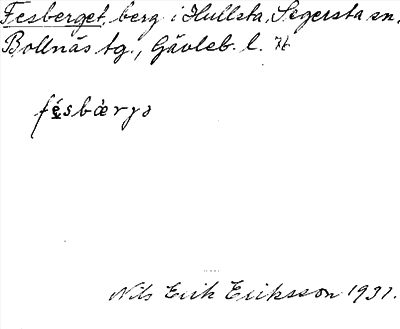 Fesberget, berg i Hullsta, Segersta sn.
Bollnäs tg., Gävleb. l.
fésbærjə
Nils Erik Eriksson 1931.